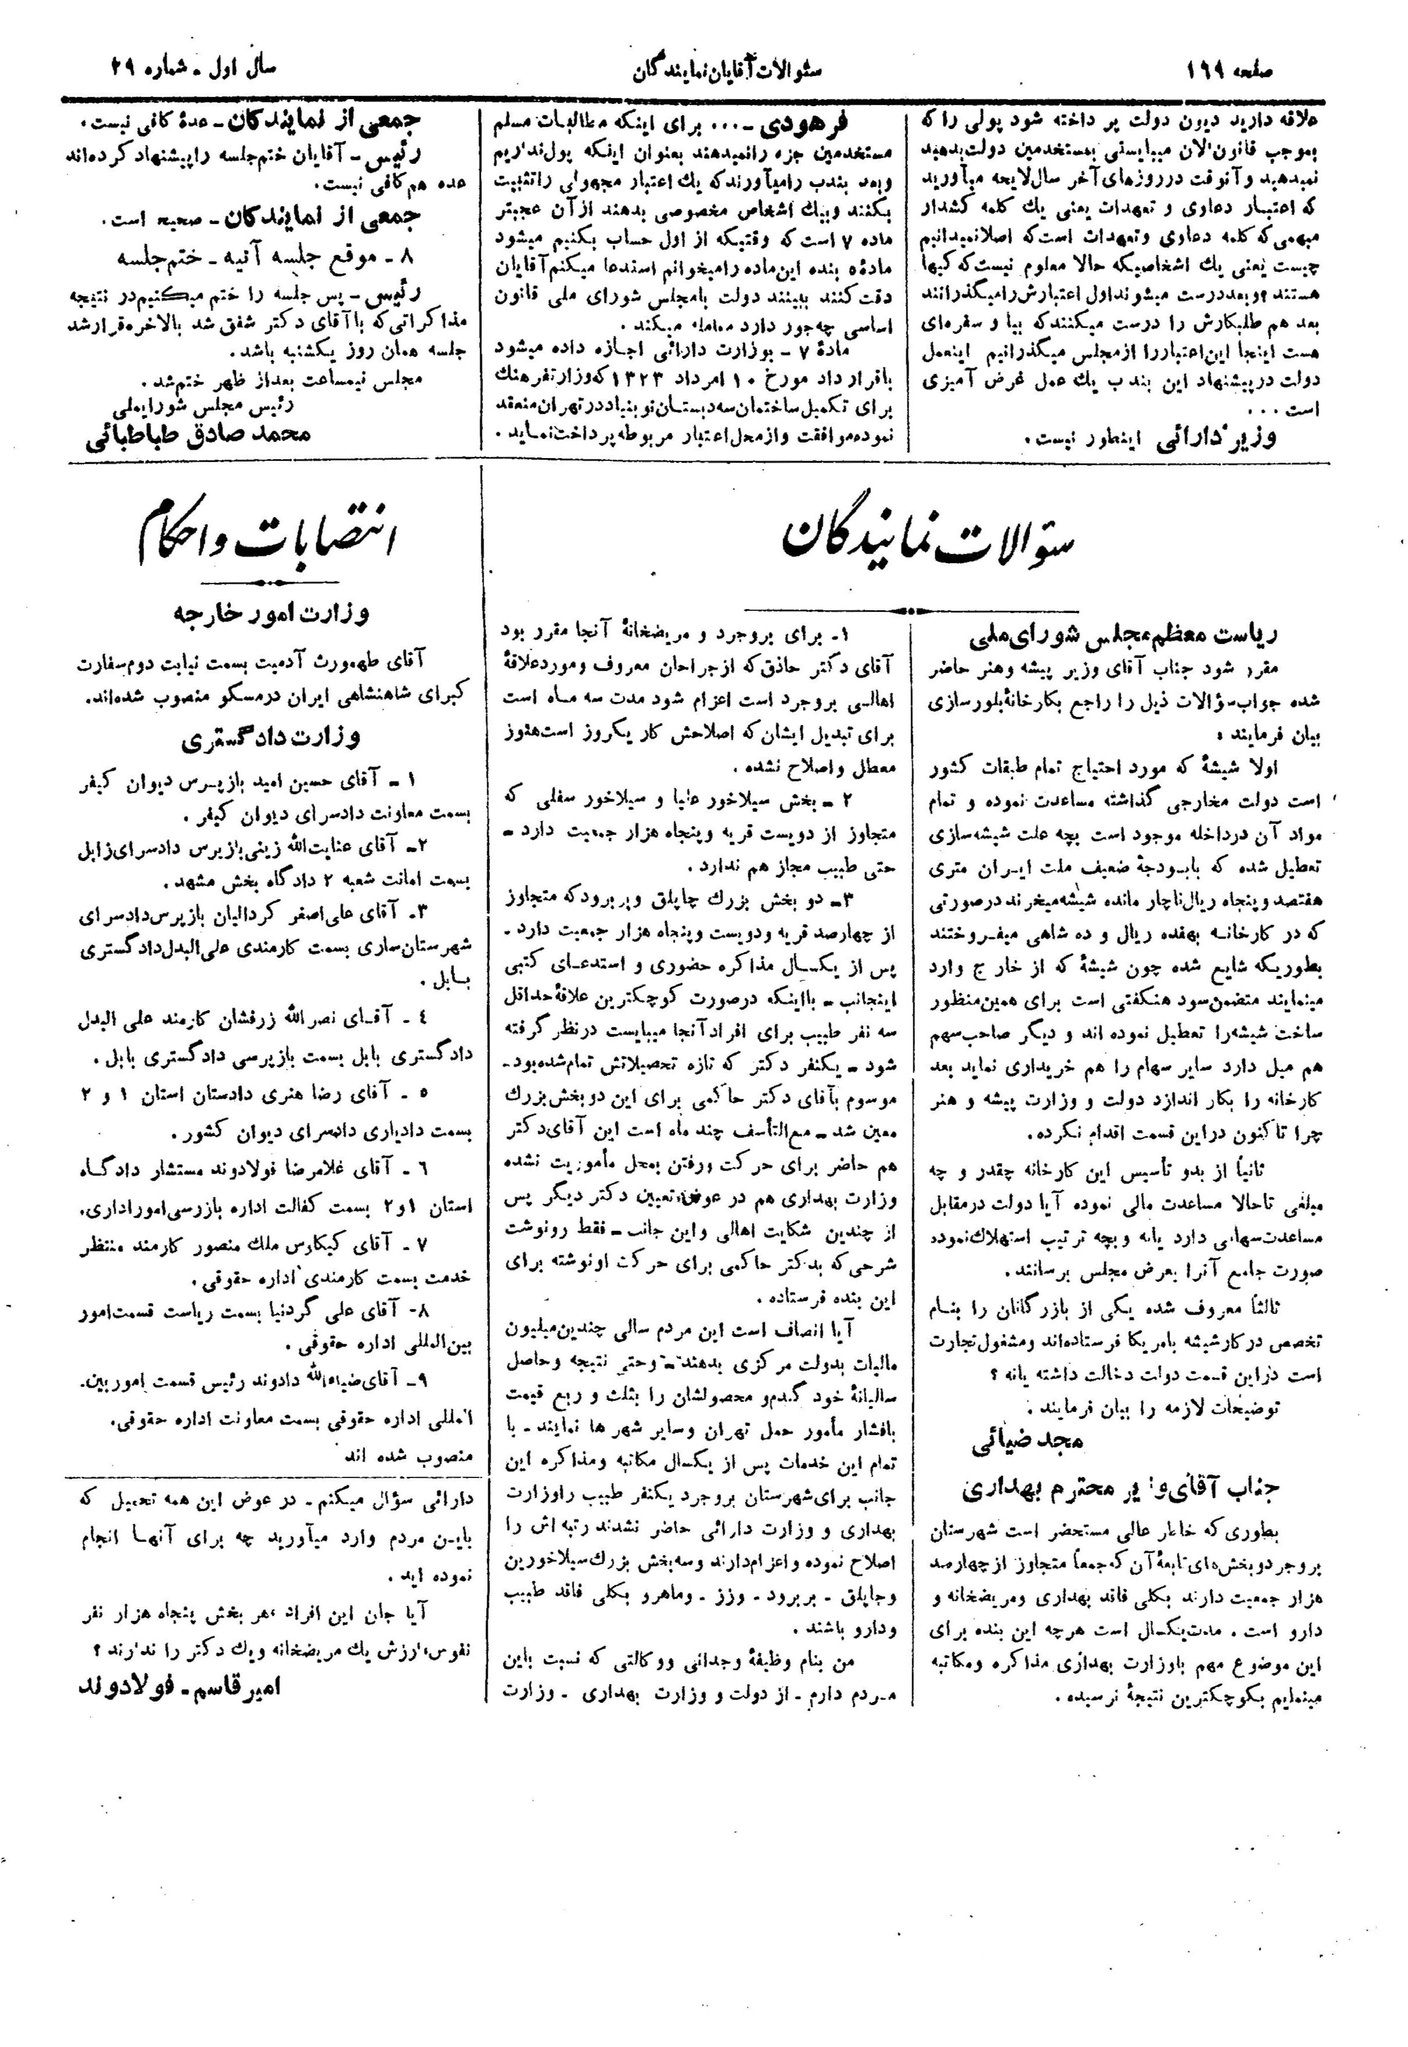 صفحه ۱۶۹
سئوالات آقایان نمایندگان
سال اول ـ شماره ۲۹
علاقه دارید دیون دولت پرداخته شود پولی را که
بموجب قانون الان میبایستی بمستخدمین دولت بدهید
نمیدهید و آنوقت در روزهای آخر سال لایحه میآورید
که اعتبار دعاوی و تعهدات یعنی یك کلمه کشدار
مبهمی که کلمه دعاوی و تعهدات است که اصلا نمیدانیم
چیست یعنی یك اشخاصیکه حالا معلوم نیست که کیها
هستند و بعد درست میشوند اول اعتبارش را میگذرانند
بعد هم طلبکارش را درست میکنند که بیا و سفره‌ای
هست اینجا این اعتبار را از مجلس میگذرانیم اینعمل
دولت در پیشنهاد این بندب یك عمل غرض آمیزی
است ...
وزیر دارائی اینطور نیست .
فرهودی ـ ... برای اینکه مطالبات مسلم
مستخدمین جزء را نمیدهند بعنوان اینکه پول نداریم
و بعد بندب را میآورند که یك اعتبار مجهولی را تثبیت
بکنند و بیك اشخاص مخصوصی بدهند از آن عجیبتر
ماده ۷ است که وقتیکه از اول حساب بکنیم میشود
ماده ۵ بنده این ماده را میخوانم استدعا میکنم آقایان
دقت کنند ببینند دولت با مجلس شورای ملی قانون
اساسی چه جور دارد معامله میکند .
مادهٔ ۷ ـ بوزارت دارائی اجازه داده میشود
باقرارداد مورخ ۱۰ امرداد ۱۳۲۳ که وزارت فرهنك
برای تکمیل ساختمان سه دبستان نوبنیاد در تهران منعقد
نموده موافقت و از محل اعتبار مربوطه پرداخت نماید .
جمعی از نمایندگان ـ عدهٔ کافی نیست .
رئیس ـ آقایان ختم جلسه را پیشنهاد کرده‌اند
عده هم کافی نیست.
جمعی از نمایندگان ـ صحیح است .
۸ ـ موقع جلسه آتیه ـ ختم جلسه
رئیس ـ پس جلسه را ختم میکنیم در نتیجه
مذاکراتی که با آقای دکتر شفق شد بالاخره قرار شد
جلسه همان روز یکشنبه باشد .
مجلس نیمساعت بعد از ظهر ختم شد.
رئیس مجلس شورایملی
محمد صادق طباطبائی
سؤالات نمایندگان
ریاست معظم مجلس شورای ملی
مقرر شود جناب آقای وزیر پیشه و هنر حاضر
شده جواب سؤالات ذیل را راجع بکارخانهٔ بلورسازی
بیان فرمایند :
اولا شیشهٔ که مورد احتیاج تمام طبقات کشور
است دولت مخارجی گذاشته مساعدت نموده و تمام
مواد آن در داخله موجود است بچه علت شیشه سازی
تعطیل شده که با بودجهٔ ضعیف ملت ایران متری
هفتصد و پنجاه ریال ناچار مانده شیشه میخرند در صورتی
که در کارخانه بهفده ریال و ده شاهی میفروختند
بطوریکه شایع شده چون شیشهٔ که از خارج وارد
مینمایند متضمن سود هنگفتی است برای همین منظور
ساخت شیشه را تعطیل نموده اند و دیگر صاحب سهم
هم میل دارد سایر سهام را هم خریداری نماید بعد
کارخانه را بکار اندازد دولت و وزارت پیشه و هنر
چرا تاکنون در این قسمت اقدام نکرده.
ثانیاً از بدو تأسیس این کارخانه چقدر و چه
مبلغی تاحالا مساعدت مالی نموده آیا دولت در مقابل
مساعدت سهامی دارد یا نه و بچه ترتیب استهلاك نموده
صورت جامع آنرا بعرض مجلس برسانند.
ثالثاً معروف شده یکی از بازرگانان را بنام
تخصص در کار شیشه بامریکا فرستاده‌اند و مشغول تجارت
است در این قسمت دولت دخالت داشته یا نه ؟
توضیحات لازمه را بیان فرمایند .
مجد ضیائی
جناب آقای وزیر محترم بهداری
بطوری که خاطر عالی مستحضر است شهرستان
بروجرد و بخش‌های تابعهٔ آن که جمعاً متجاوز از چهارصد
هزار جمعیت دارند بکلی فاقد بهداری و مریضخانه و
دارو است . مدت یکسال است هرچه این بنده برای
این موضوع مهم با وزارت بهداری مذاکره و مکاتبه
مینمایم بکوچکترین نتیجهٔ نرسیده .
۱ـ برای بروجرد و مریضخانهٔ آنجا مقرر بود
آقای دکتر حاذق که از جراحان معروف و مورد علاقهٔ
اهالی بروجرد است اعزام شود مدت سه ماه است
برای تبدیل ایشان که اصلاحش کار یکروز است هنوز
معطل و اصلاح نشده .
۲ ـ بخش سیلاخور علیا و سیلاخور سفلی که
متجاوز از دویست قریه و پنجاه هزار جمعیت دارد ـ
حتی طبیب مجاز هم ندارد .
۳ ـ دو بخش بزرك چاپلق و بربرود که متجاوز
از چهارصد قریه و دویست و پنجاه هزار جمعیت دارد .
پس از یکسال مذاکره حضوری و استدعای کتبی
اینجانب ـ با اینکه در صورت کوچکترین علاقهٔ حداقل
سه نفر طبیب برای افراد آنجا میبایست در نظر گرفته
شود ـ یکنفر دکتر که تازه تحصیلاتش تمام شده بود ـ
موسوم بآقای دکتر حاکمی برای این دو بخش بزرك
معین شد ـ مع التأسف چند ماه است این آقای دکتر
هم حاضر برای حرکت و رفتن بمحل مأموریت نشده
وزارت بهداری هم در عوض تعیین دکتر دیگر پس
از چندین شکایت اهالی و این جانب ـ فقط رونوشت
شرحی که بدکتر حاکمی برای حرکت او نوشته برای
این بنده فرستاده .
آیا انصاف است این مردم سالی چندین میلیون
مالیات بدولت مرکزی بدهند ـ و حتی نتیجه و حاصل
سالیانهٔ خود گندم و محصولشان را بثلث و ربع قیمت
بافشار مأمور حمل تهران و سایر شهر ها نمایند ـ با
تمام این خدمات پس از یکسال مکاتبه و مذاکره این
جانب برای شهرستان بروجرد یکنفر طبیب را وزارت
بهداری و وزارت دارائی حاضر نشدند رتبه اش را
اصلاح نموده و اعزام دارند و سه بخش بزرك سیلاخورین
و چاپلق ـ بربرود ـ وزز ـ و ماهرو بکلی فاقد طبیب
و دارو باشند .
من بنام وظیفهٔ وجدانی و وکالتی که نسبت باین
مردم دارم ـ از دولت و وزارت بهداری ـ وزارت
انتصابات و احکام
وزارت امور خارجه
آقای طهمورث آدمیت بسمت نیابت دوم سفارت
کبرای شاهنشاهی ایران در مسکو منصوب شده‌اند.
وزارت دادگستری
۱ ـ آقای حسین امید بازپرس دیوان کیفر
بسمت معاونت دادسرای دیوان کیفر .
۲ـ آقای عنایت‌الله زینی بازپرس دادسرای زابل
بسمت امانت شعبه ۲ دادگاه بخش مشهد.
۳ـ آقای علی‌اصغر کردالیان بازپرس دادسرای
شهرستان ساری بسمت کارمندی علی‌البدل دادگستری
بابل .
٤ ـ آقای نصرالله زرفشان کارمند علی البدل
دادگستری بابل بسمت بازپرسی دادگستری بابل .
۵ ـ آقای رضا هنری دادستان استان ۱ و ۲
بسمت دادیاری دادسرای دیوان کشور .
۶ ـ آقای غلامرضا فولادوند مستشار دادگاه
استان ۱و۲ بسمت کفالت اداره بازرسی امور اداری.
۷ ـ آقای کیکاوس ملك منصور کارمند منتظر
خدمت بسمت کارمندی اداره حقوقی .
۸- آقای علی گردنیا بسمت ریاست قسمت امور
بین‌المللی اداره حقوقی .
۹ـ آقای ضیاءالله دادوند رئیس قسمت امور بین‌ـ
المللی اداره حقوقی بسمت معاونت اداره حقوقی.
منصوب شده اند
دارائی سؤال میکنم ـ در عوض این همه تحمیل که
باین مردم وارد میآورید چه برای آنها انجام
نموده اید .
آیا جان این افراد هر بخش پنجاه هزار نفر
نفوس ارزش یك مریضخانه و یك دکتر را ندارند ؟
امیر قاسم ـ فولادوند